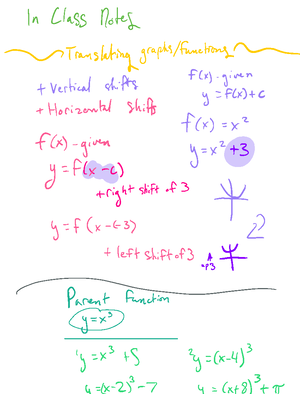 In Class Notes
Translating graphs/functions
+ Vertical shifts
+ Horizontal shifts
f(x) - given
y = f(x) + c
f(x) = x²
y = x² + 3
f(x) - given
y = f(x - c)
+ right shift of 3
y = f(x - (-3)
+ left shift of 3
up 3
Parent Function
y = x³
1 y = x³ + 5
2 y = (x-4)³
y = (x-2)³ - 7
y = (x+8)³ + π